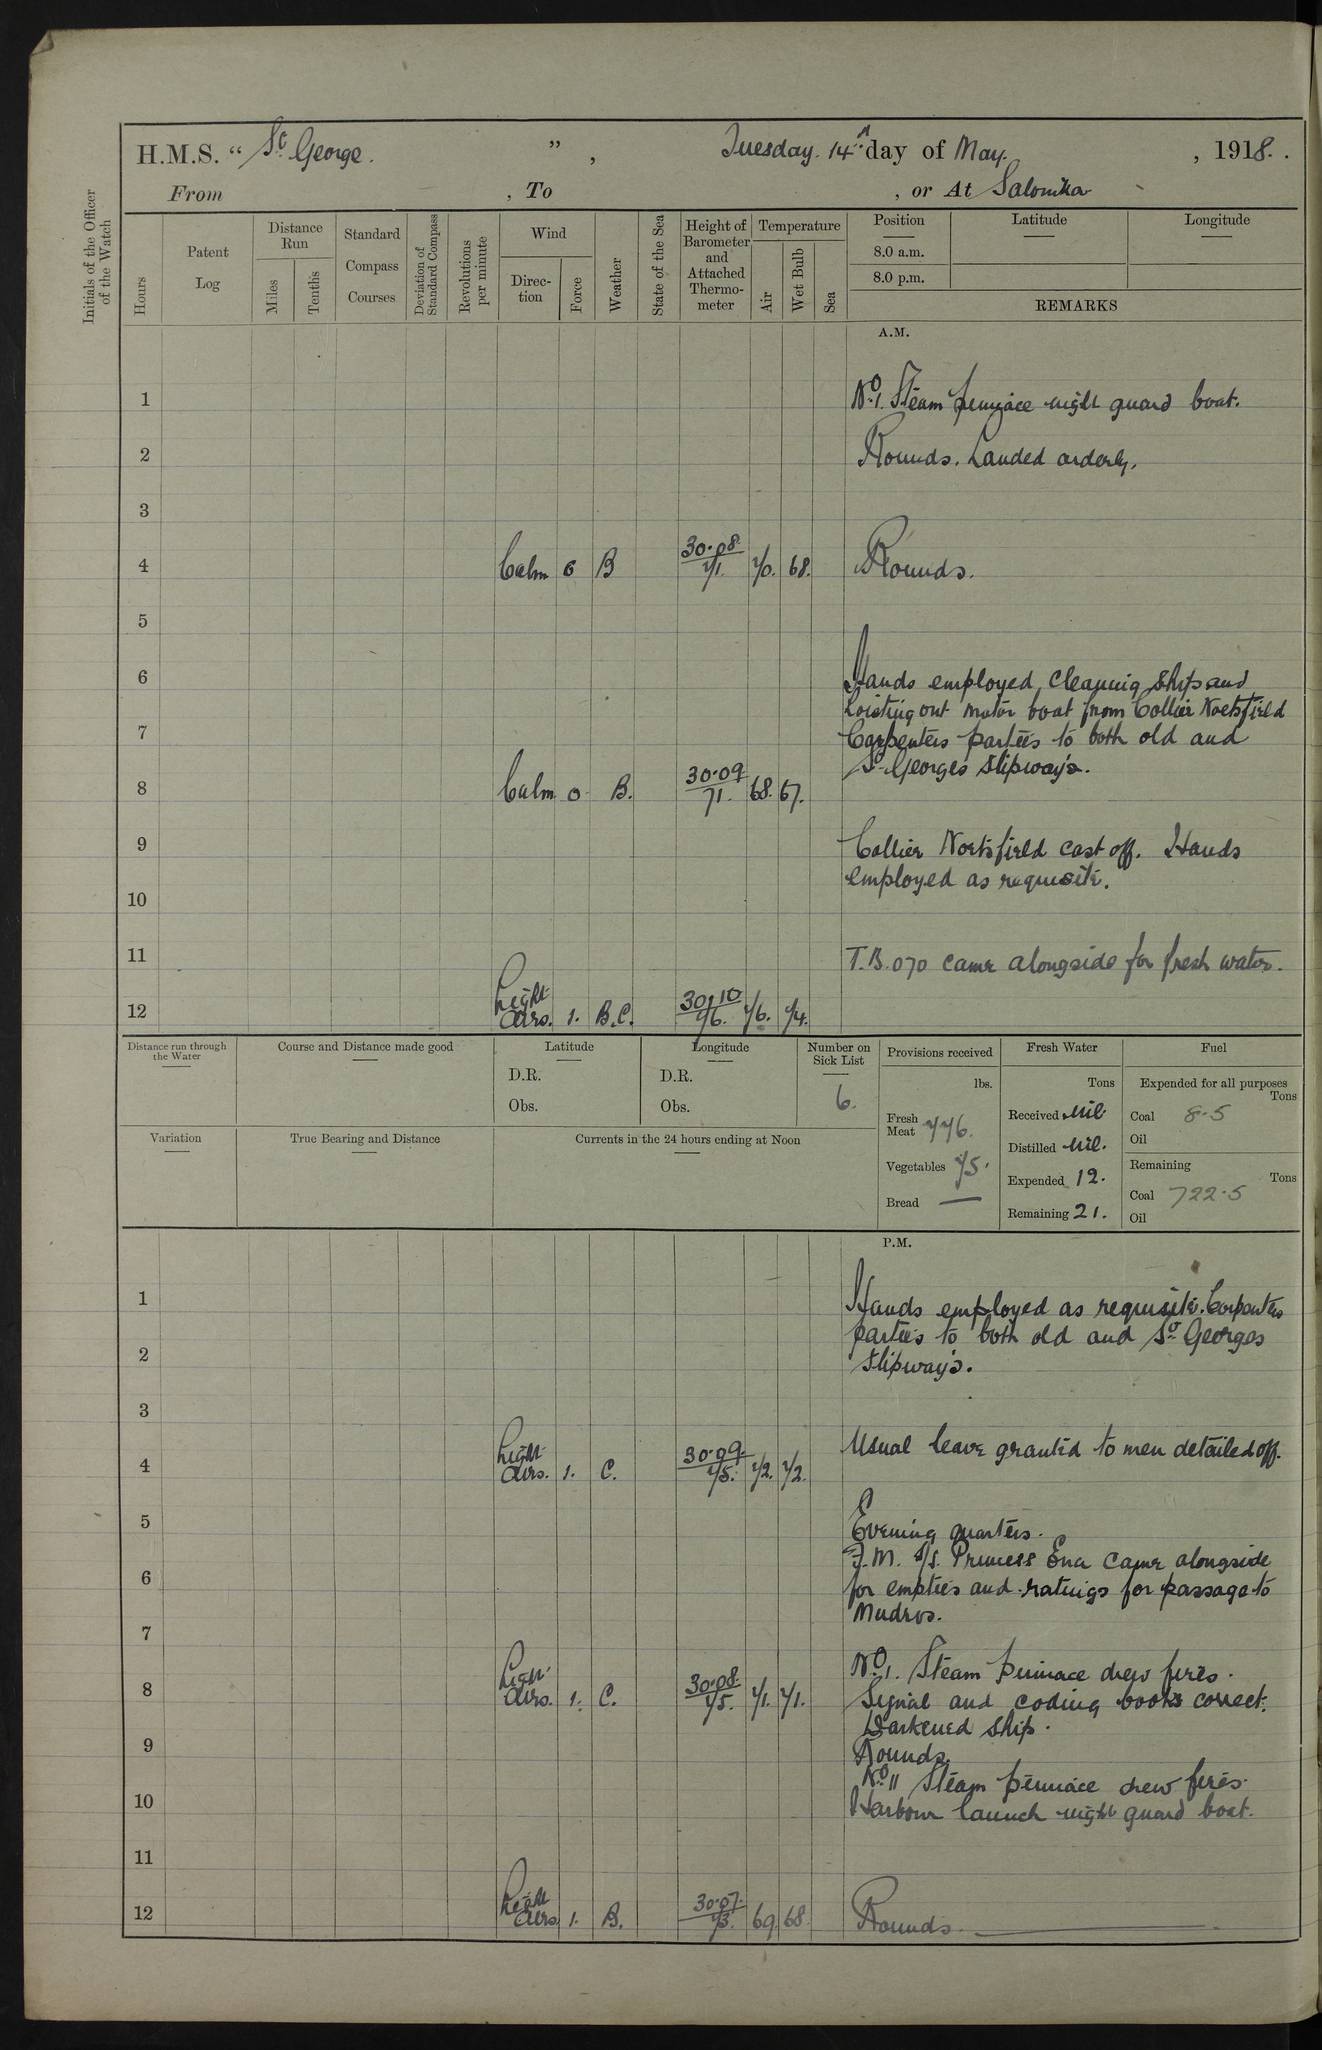 H.M.S. “ St George. ” , Tuesday. 14th day of May. , 1918. .
From , To , or At Salonika
Initials of the Officer of the Watch
Hours
Patent Log
Distance Run
Miles
Tenths
Standard Compass Courses
Deviation of Standard Compass
Revolutions per minute
Wind
Direction
Force
Weather
State of the Sea
Height of Barometer and Attached Thermometer
Temperature
Air
Wet Bulb
Sea
Position Latitude Longitude
8.0 a.m.
8.0 p.m.
REMARKS
A.M.
1 No 1. Steam pinnace night guard boat.
2 Rounds. Landed orderly.
3
4 Calm 0 B 30.08 71. 70. 68. Rounds.
5
6 Hands employed, cleaning ship and
hoisting out motor boat from Collier
7 Carpenters parties to both old and
St Georges slipway's.
8 Calm 0 B. 30.09 71. 68. 67.
9 Collier cast off. Hands
employed as requisite.
10
11 T.B. 070 came alongside for fresh water.
12 Light Airs. 1. B.C. 30.10 76. 76. 74.
Distance run through the Water
Course and Distance made good
Latitude
D.R.
Obs.
Longitude
D.R.
Obs.
Number on Sick List
6.
Provisions received
lbs.
Fresh Meat 776.
Vegetables 75.
Bread —
Fresh Water
Tons
Received Nil
Distilled Nil.
Expended 12.
Remaining 21.
Fuel
Expended for all purposes
Tons
Coal 8.5
Oil
Remaining
Tons
Coal 722.5
Oil
Variation
True Bearing and Distance
Currents in the 24 hours ending at Noon
P.M.
1 Hands employed as requisite. Carpenters
parties to both old and St Georges
2 slipway's.
3
4 Light Airs. 1. C. 30.09. 75. 72. 72. Usual leave granted to men detailed off.
5 Evening quarters.
F.M. S/S. Princess Ena came alongside
6 for empties and ratings for passage to
Mudros.
7
No 1. Steam pinnace drew fires.
8 Light Airs. 1. C. 30.08. 75. 71. 71. Signal and coding books correct.
Darkened ship.
9 Rounds.
No 11 Steam pinnace drew fires.
10 Harbour launch night guard boat.
11
12 Light Airs 1. B. 30.07. 73. 69. 68 Rounds.